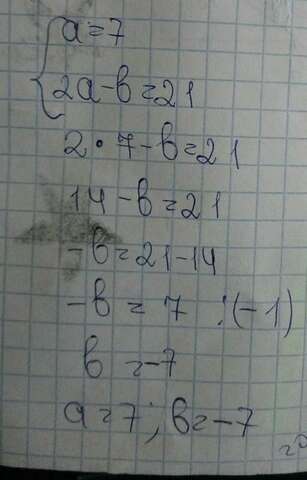 a=7
2a-b=21
2·7-b=21
14-b=21
-b=21-14
-b = 7 :(-1)
b =-7
a=7; b=-7